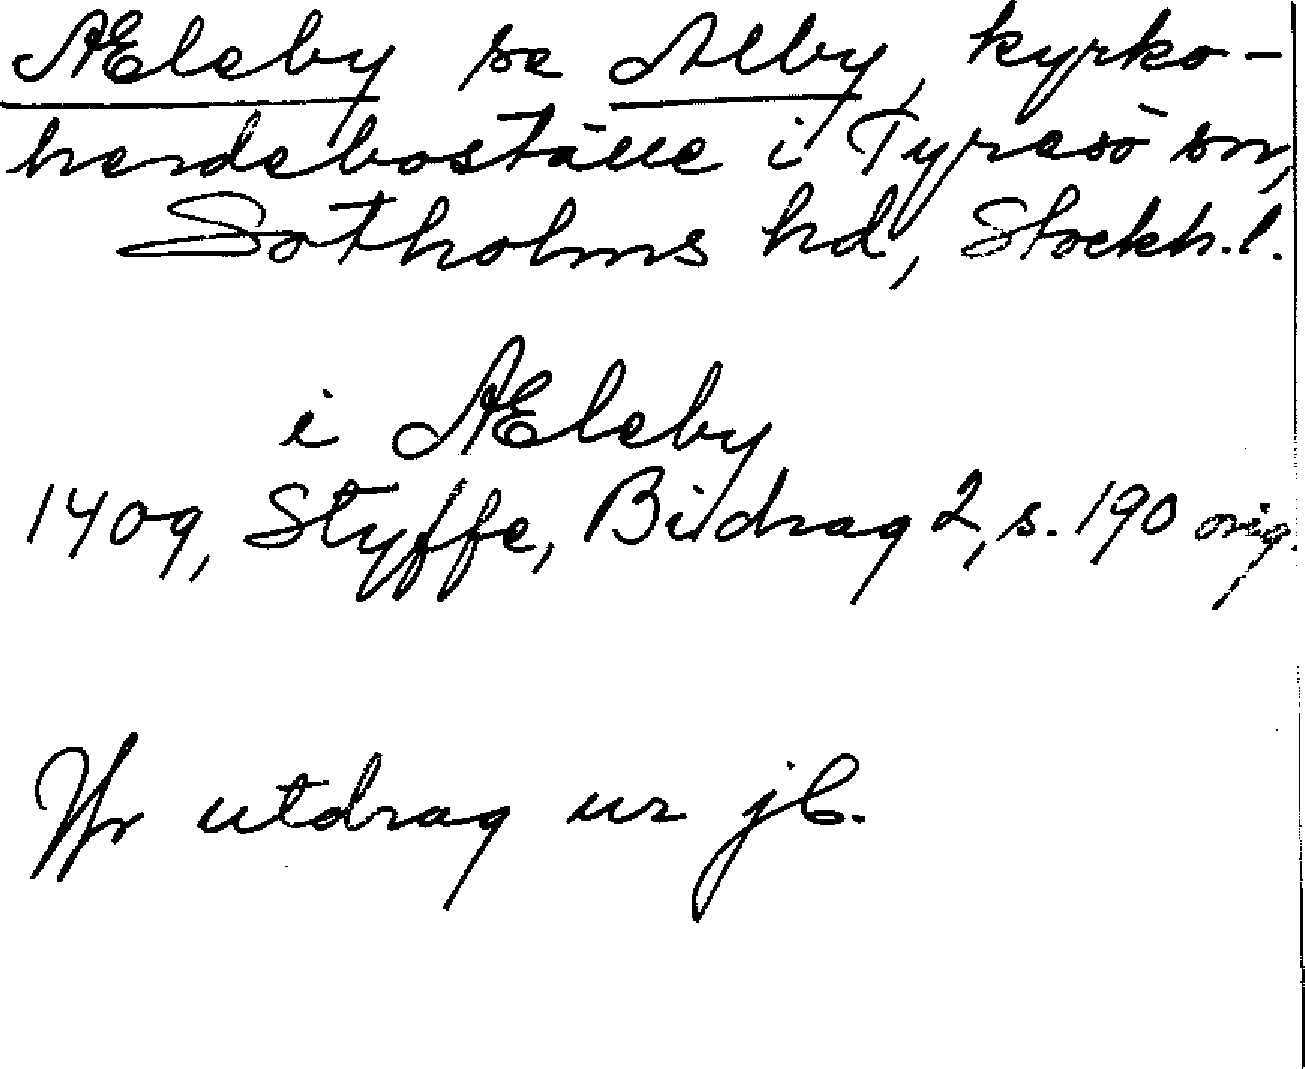 Æleby se Alby, kyrko-
herdeboställe i Tyresö sn,
Sotholms hd, Stockh.l.
i Æleby
1409, Styffe, Bidrag 2, s. 190 orig.
Jfr utdrag ur jb.